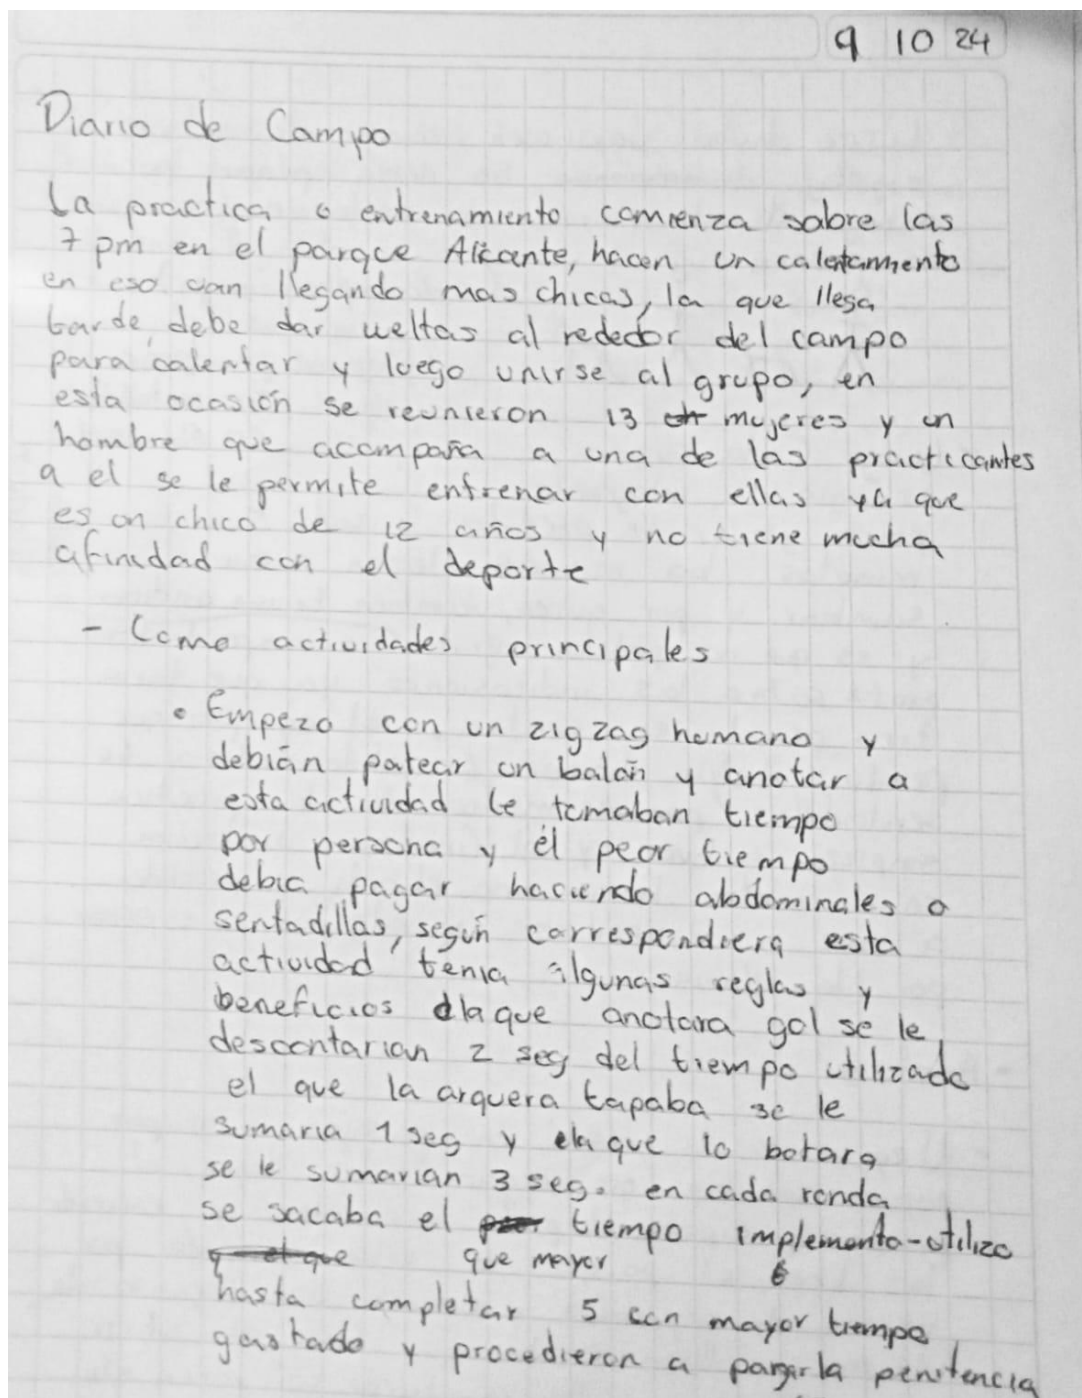 9 10 24
Diario de Campo
La practica o entrenamiento comienza sobre las
7 pm en el parque Alicante, hacen un caletamiento
en eso van llegando mas chicas, la que llega
tarde debe dar ueltas al rededor del campo
para calentar y luego unirse al grupo, en
esta ocasión se reunieron 13 mujeres y un
hombre que acompaña a una de las practicantes
a el se le permite entrenar con ellas ya que
es un chico de 12 años y no tiene mucha
afinidad con el deporte
- Como actividades principales
• Empezo con un zig zag humano y
debián patear un balón y anotar a
esta actividad le tomaban tiempo
por persona y él peor tiempo
debia pagar haciendo abdominales o
sentadillas, según correspondiera esta
actividad tenia algunas reglas y
beneficios a la que anotara gol se le
descontarian 2 seg del tiempo utilizado
el que la arquera tapaba se le
sumaria 1 seg y a la que lo botara
se le sumarian 3 seg. en cada ronda
se sacaba el tiempo implemento-utilizo
que mayor
hasta completar 5 con mayor tiempo
gastado y procedieron a pagar la penitencia